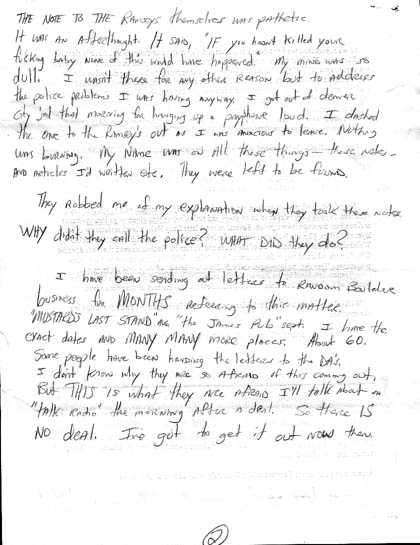 THE NOTE TO THE Ramseys themselves was pathetic.
It was an Afterthought. It said, "IF you hadnt killed your
fucking baby none of this would have happened." My mind was so
dull. I wasnt there for any other reason but to address
the police problems I was having anyway. I got out of denver
city jail that morning for hanging up a payphone loud. I dashed
the one to the Ramseys out as I was anxious to leave. Nothing
was burning. My Name was on All these things — these notes -
AND articles I'd written etc. They were left to be found.
They Robbed me of my explanation when they took these notes
WHY didn't they call the police? WHAT DID they do?
I have been sending out letters to Random Boulder
business for MONTHS referring to this matter.
"MUSTARDS LAST STAND" and "the James Pub" sept. I have the
exact dates AND MANY MANY more places. About 60.
Some people have been handing the letters to the DA's.
I don't know why they are so Afraid of this coming out.
But THIS is what they are afraid I'll talk about on
"talk Radio" the morning after a deal. So there IS
NO deal. I've got to get it out NOW then.
2